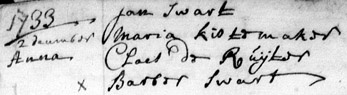 1733
2 december
Anna
Jan Swart
Maria kistemaker
Claes de Ruijter
x Barber Swart